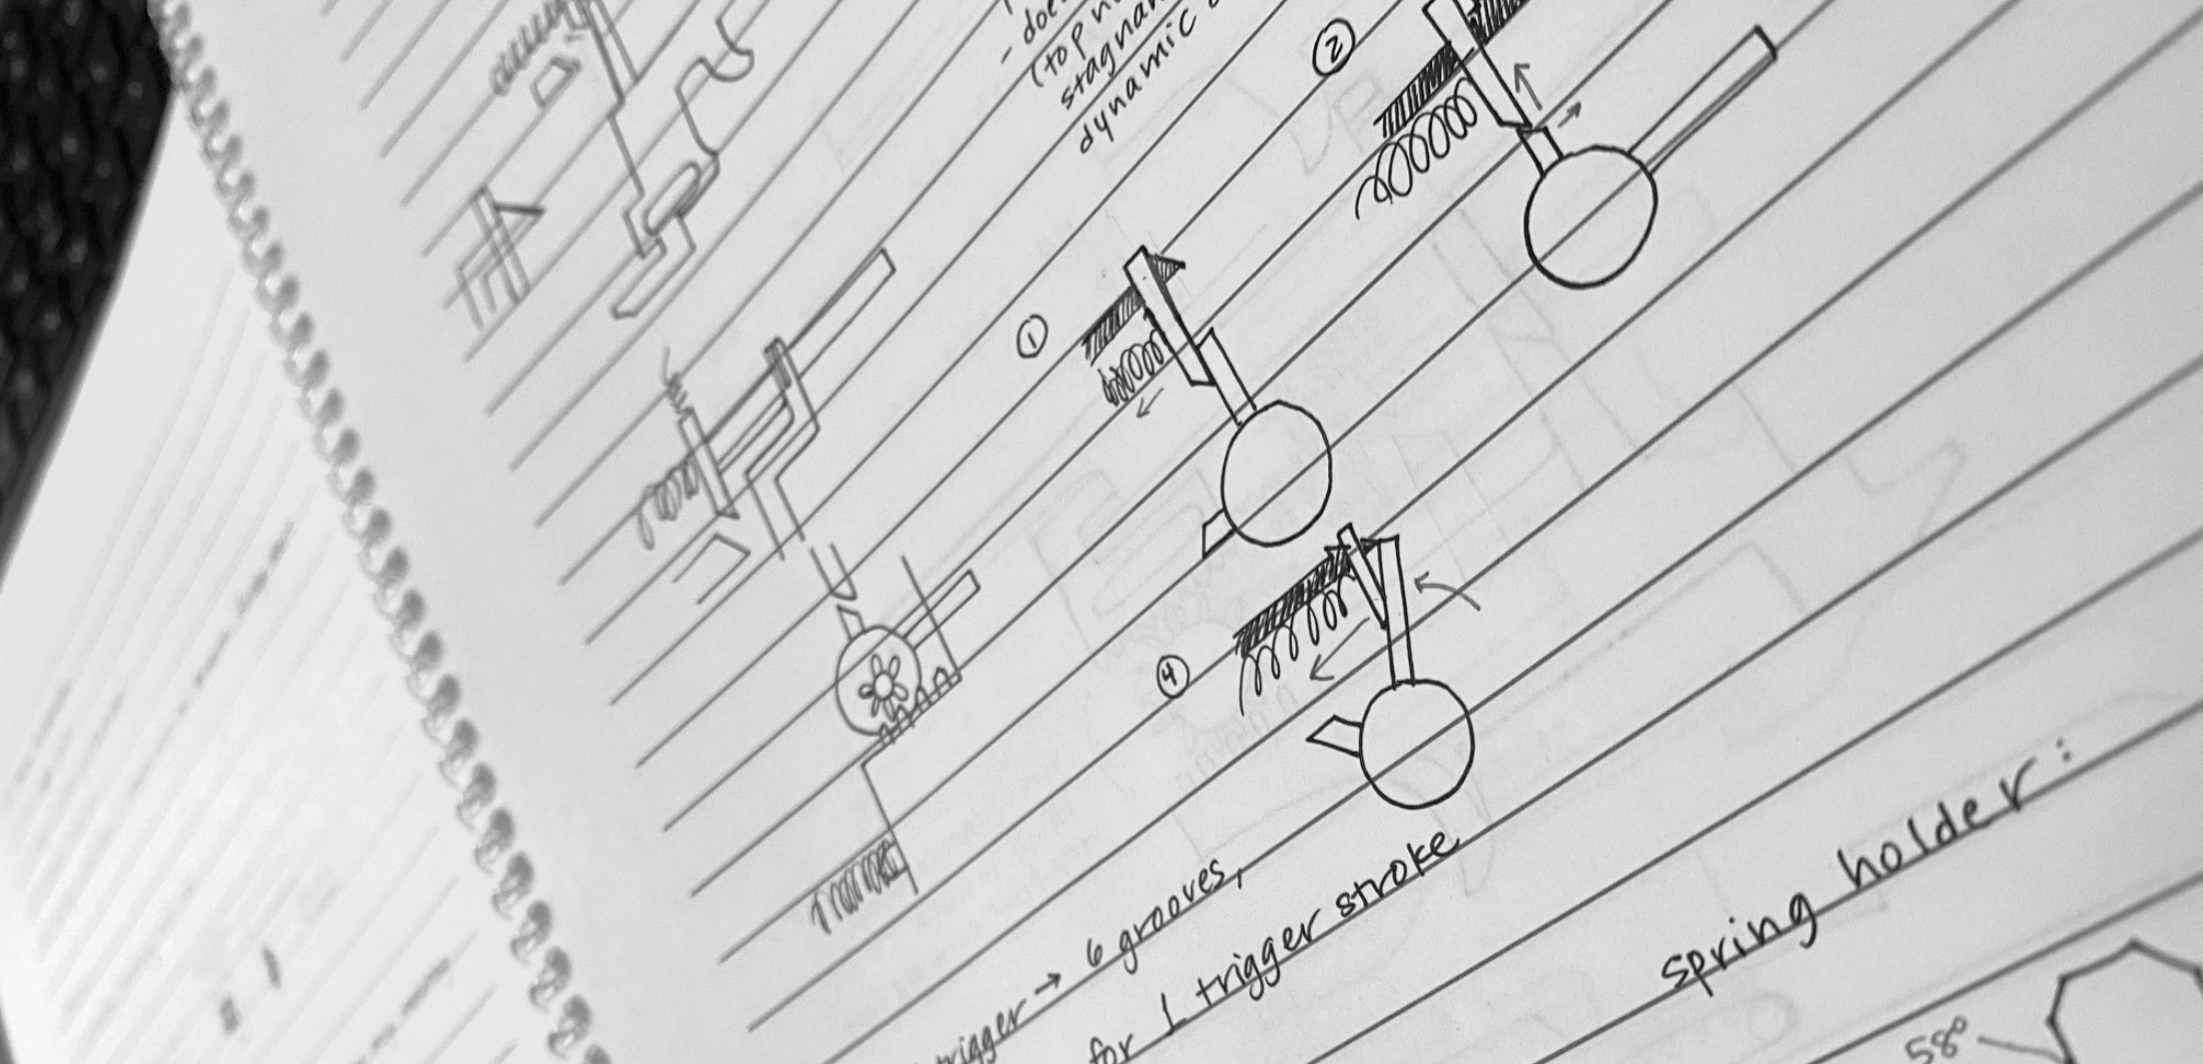 - doe
(top n
stagnan
dynamic
②
①
④
trigger → 6 grooves,
for 1 trigger stroke
spring holder:
58°